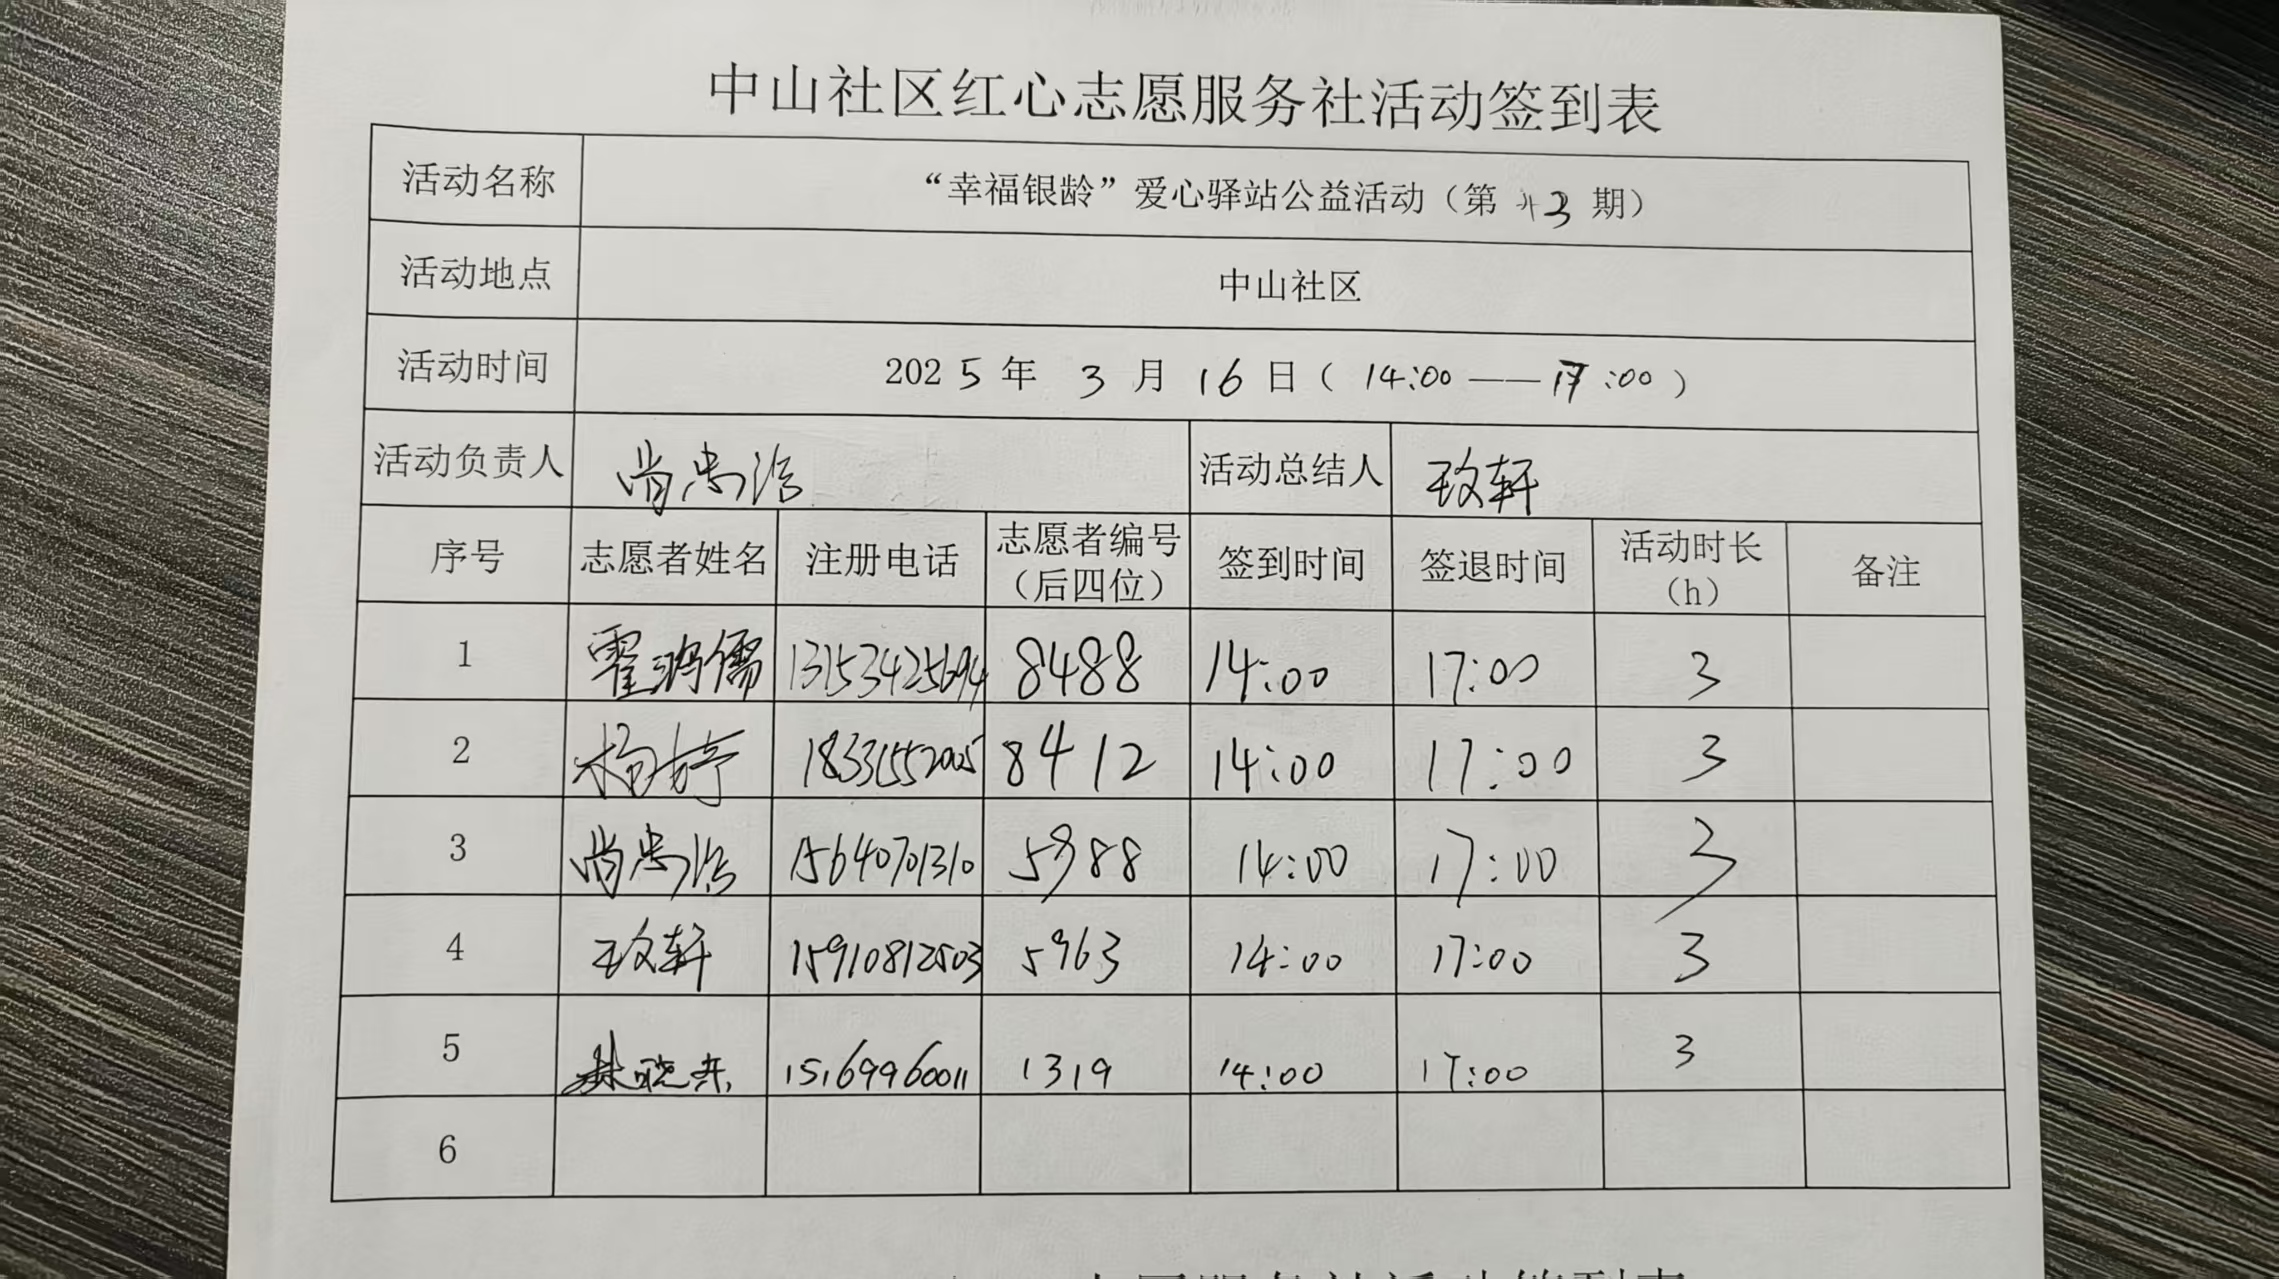 中山社区红心志愿服务社活动签到表
活动名称 “幸福银龄”爱心驿站公益活动（第 3 期）
活动地点 中山社区
活动时间 2025 年 3 月 16 日（ 14:00 —— 17:00 ）
活动负责人 尚忠浴 活动总结人 玟轩
序号 志愿者姓名 注册电话 志愿者编号（后四位） 签到时间 签退时间 活动时长（h） 备注
1 霍鸿儒 13153425694 8488 14:00 17:00 3
2 杨婷 18331552005 8412 14:00 17:00 3
3 尚忠浴 15640701310 5988 14:00 17:00 3
4 玟轩 15910812503 5963 14:00 17:00 3
5 晓东 15169960011 1319 14:00 17:00 3
6